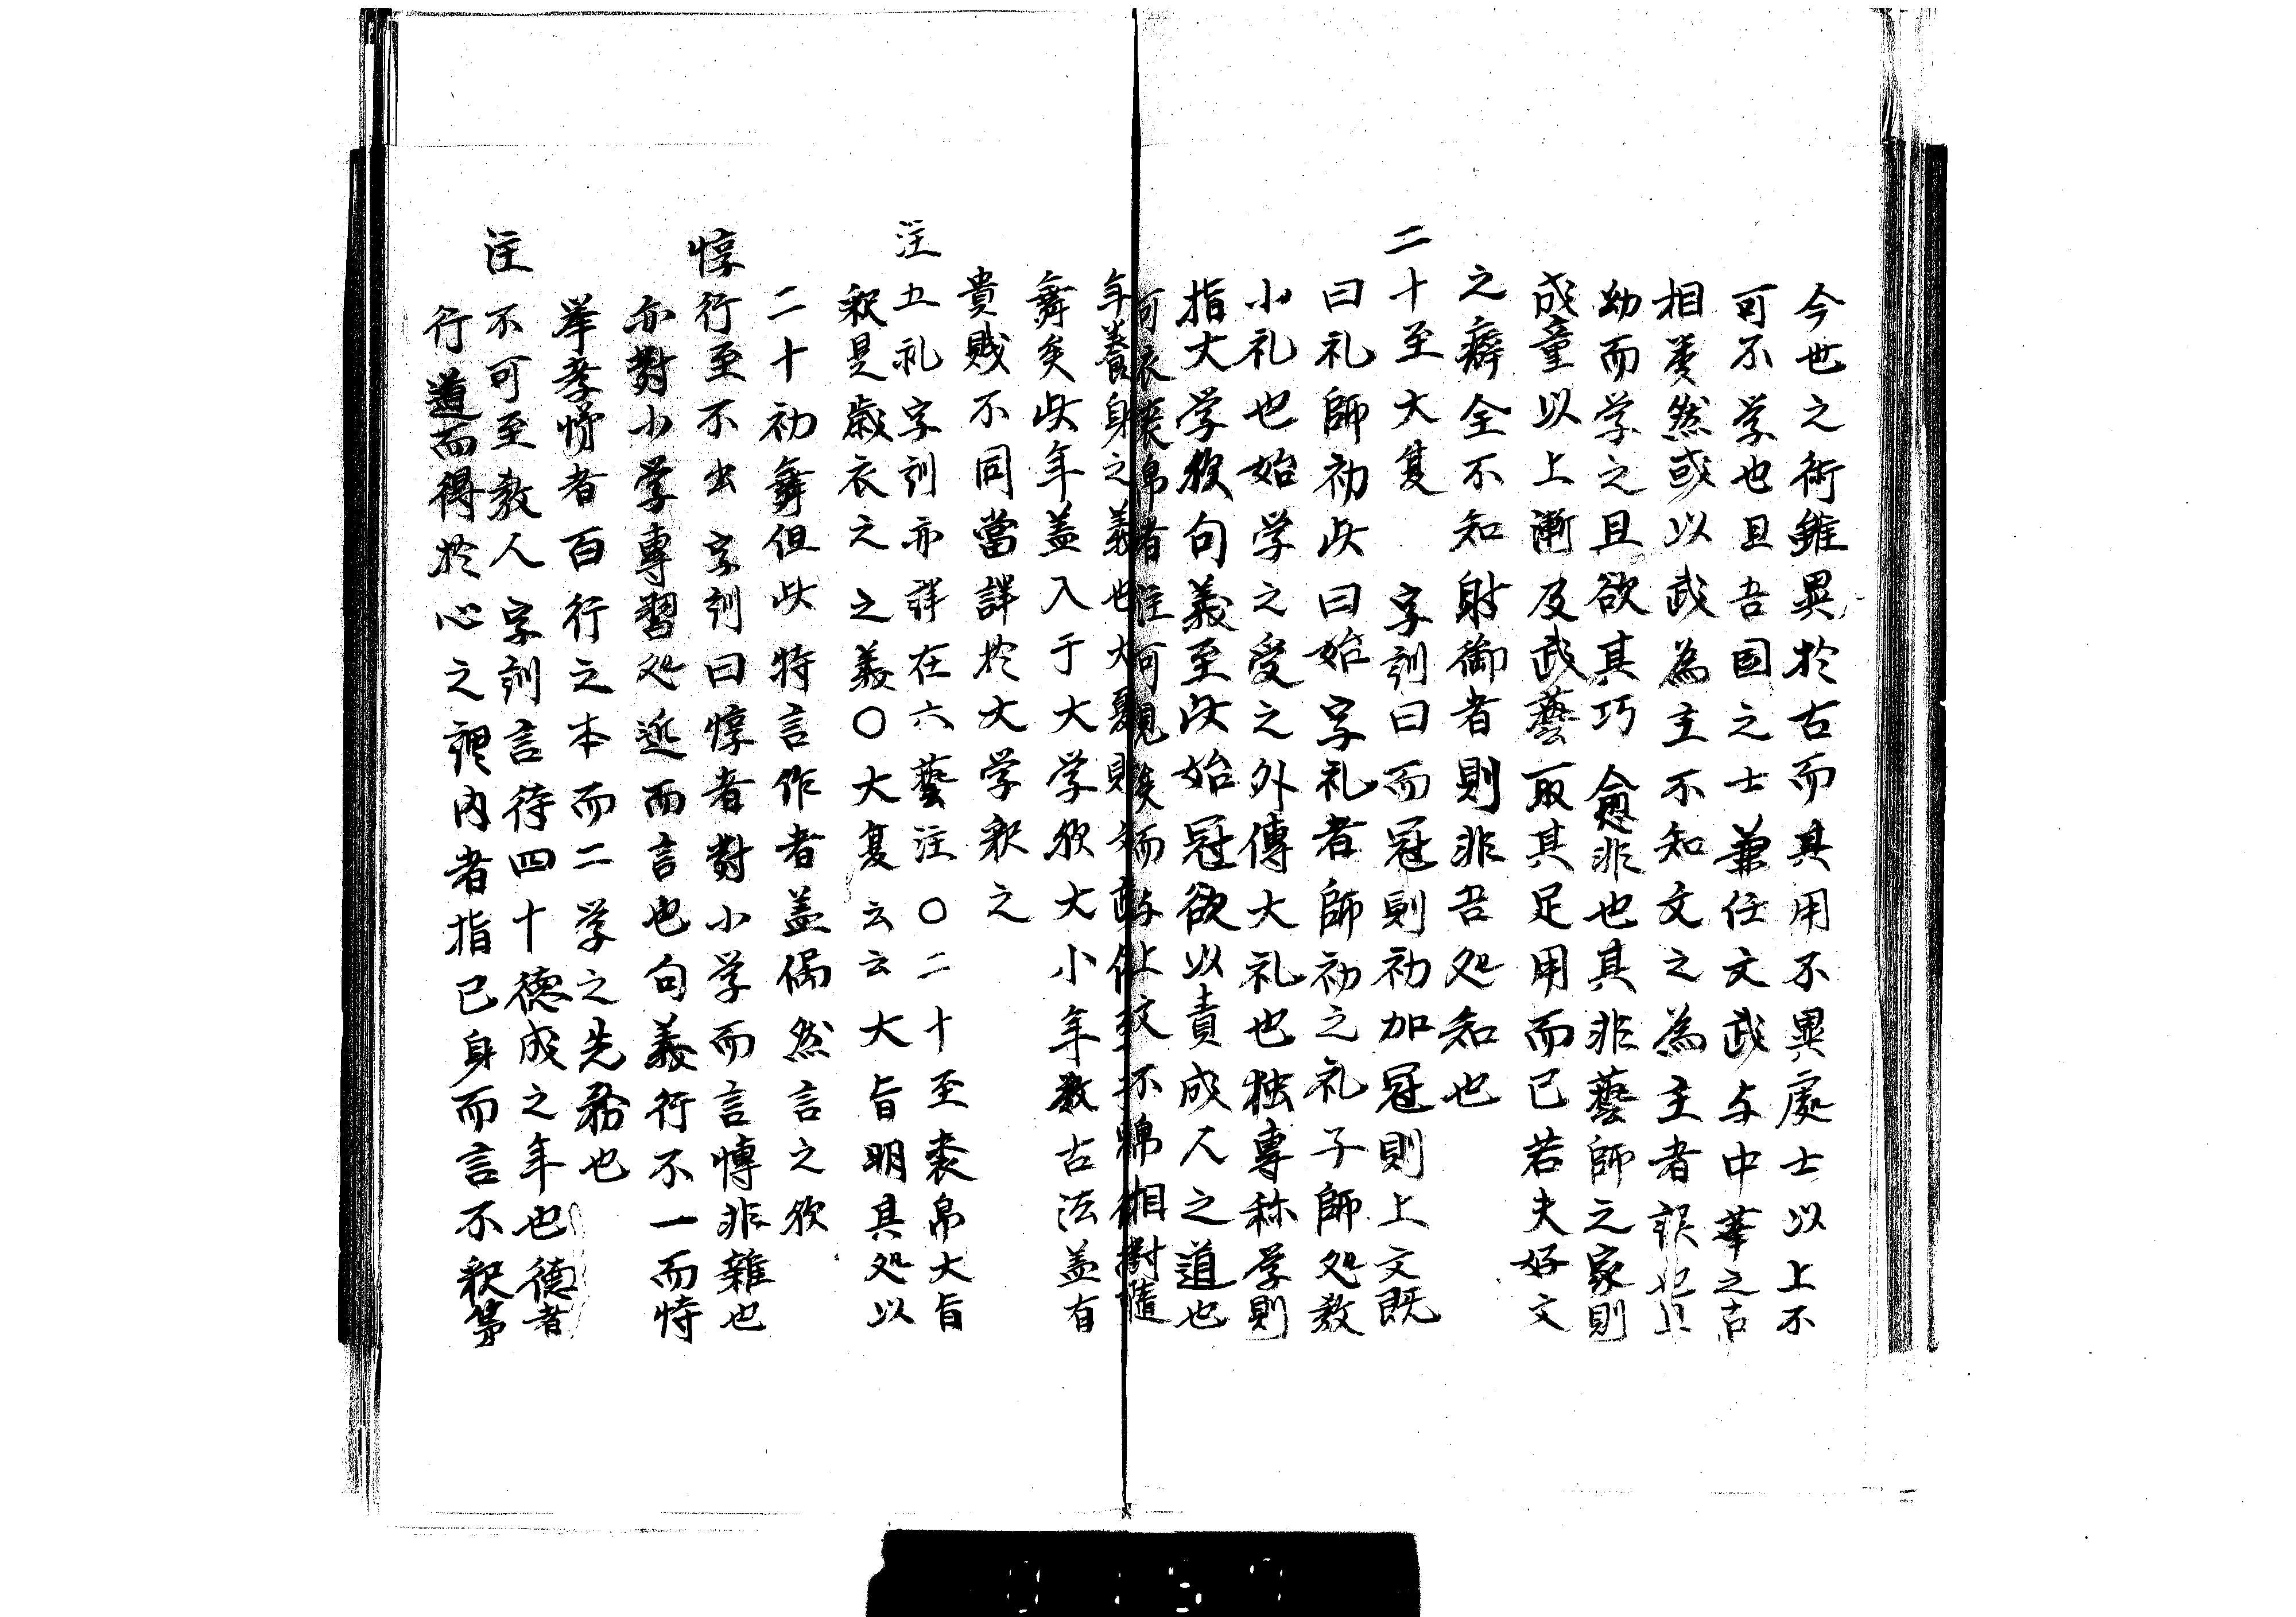 今世之術雖異於古而其用不異處士以上不
可不学也且吾国之士兼任文武与中華之古
相戻然或以武為主不知文之為主者誤也
幼而学之且欲其巧愈非也其非藝師之家則
成童以上漸及武藝取其足用而已若夫好文
之癖全不知射御者則非吾処知也
二十至大夏 字訓曰而冠則初加冠則上文既
曰礼師初此曰始字礼者師初之礼子師処教
小礼也始学之受之外傳大礼也独専称学則
指大学欤句義至此始冠欲以責成人之道也
可衣裘帛者注可見矣而
年養身之義也大夏則
舞矣此年盖入于大学欤大小年数古法盖有
貴賎不同當詳於大学釈之
注五礼字訓亦詳在六藝注〇二十至裘帛大旨
釈是歳衣之之義〇大夏云云大旨明其処以
二十初舞但此特言作者盖偶然言之欤
惇行至不出 字訓曰惇者對小学而言博非雜也
亦對小学專習処近而言也句義行不一而特
举孝悌者百行之本而二学之先務也
注不可至教人字訓言待四十德成之年也德者
行道而得於心之謂内者指己身而言不釈第